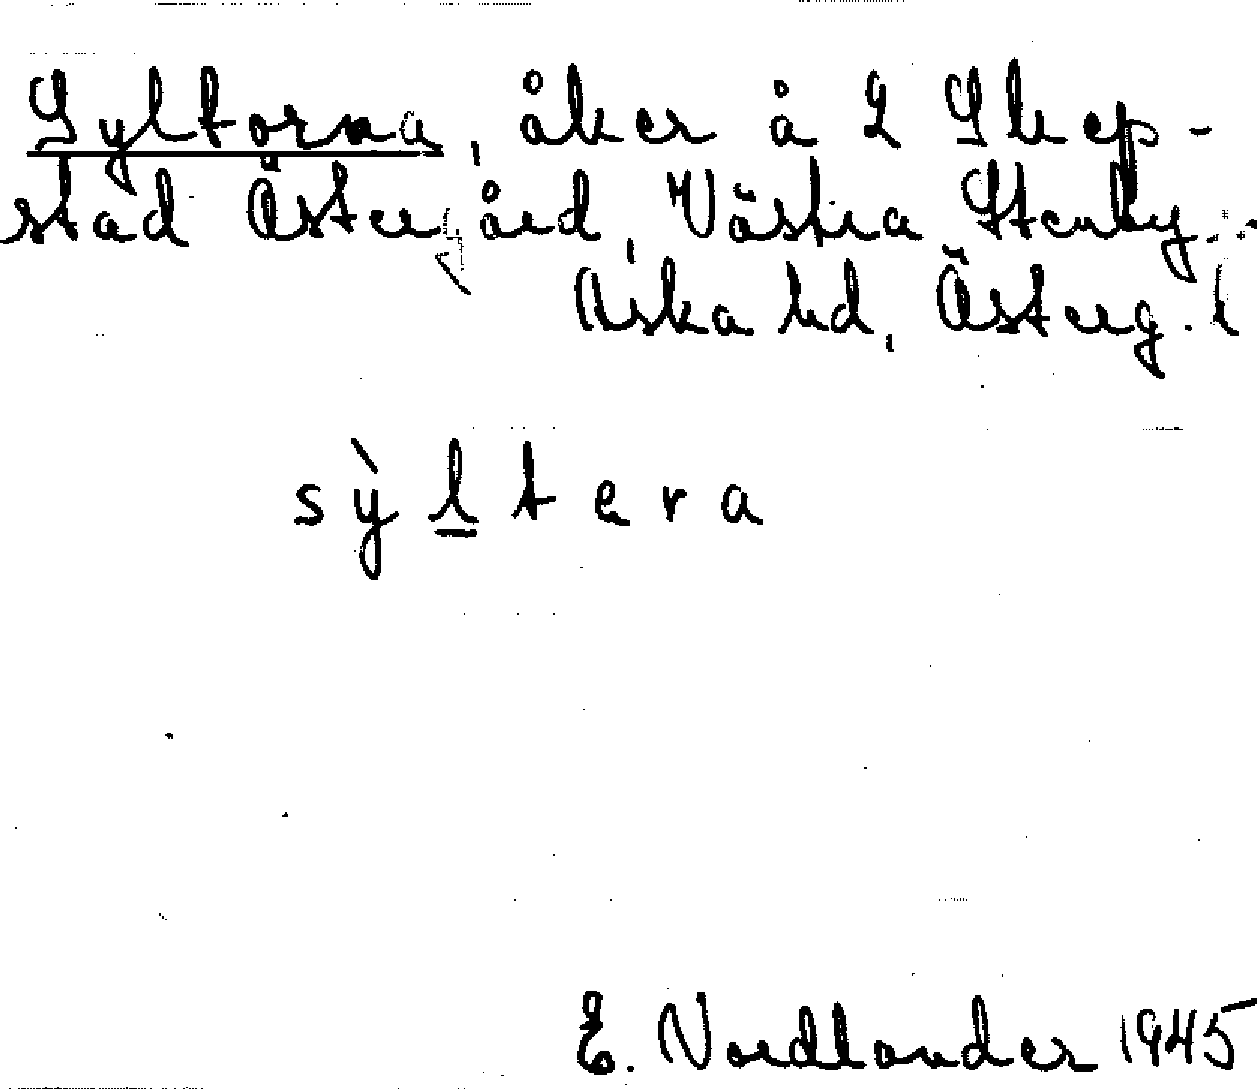 Syltorna, åker å 2 Skep-
stad Östergård, Västra Stenby
Aska hd, Österg. l
sỳltera
E. Nordlander 1945